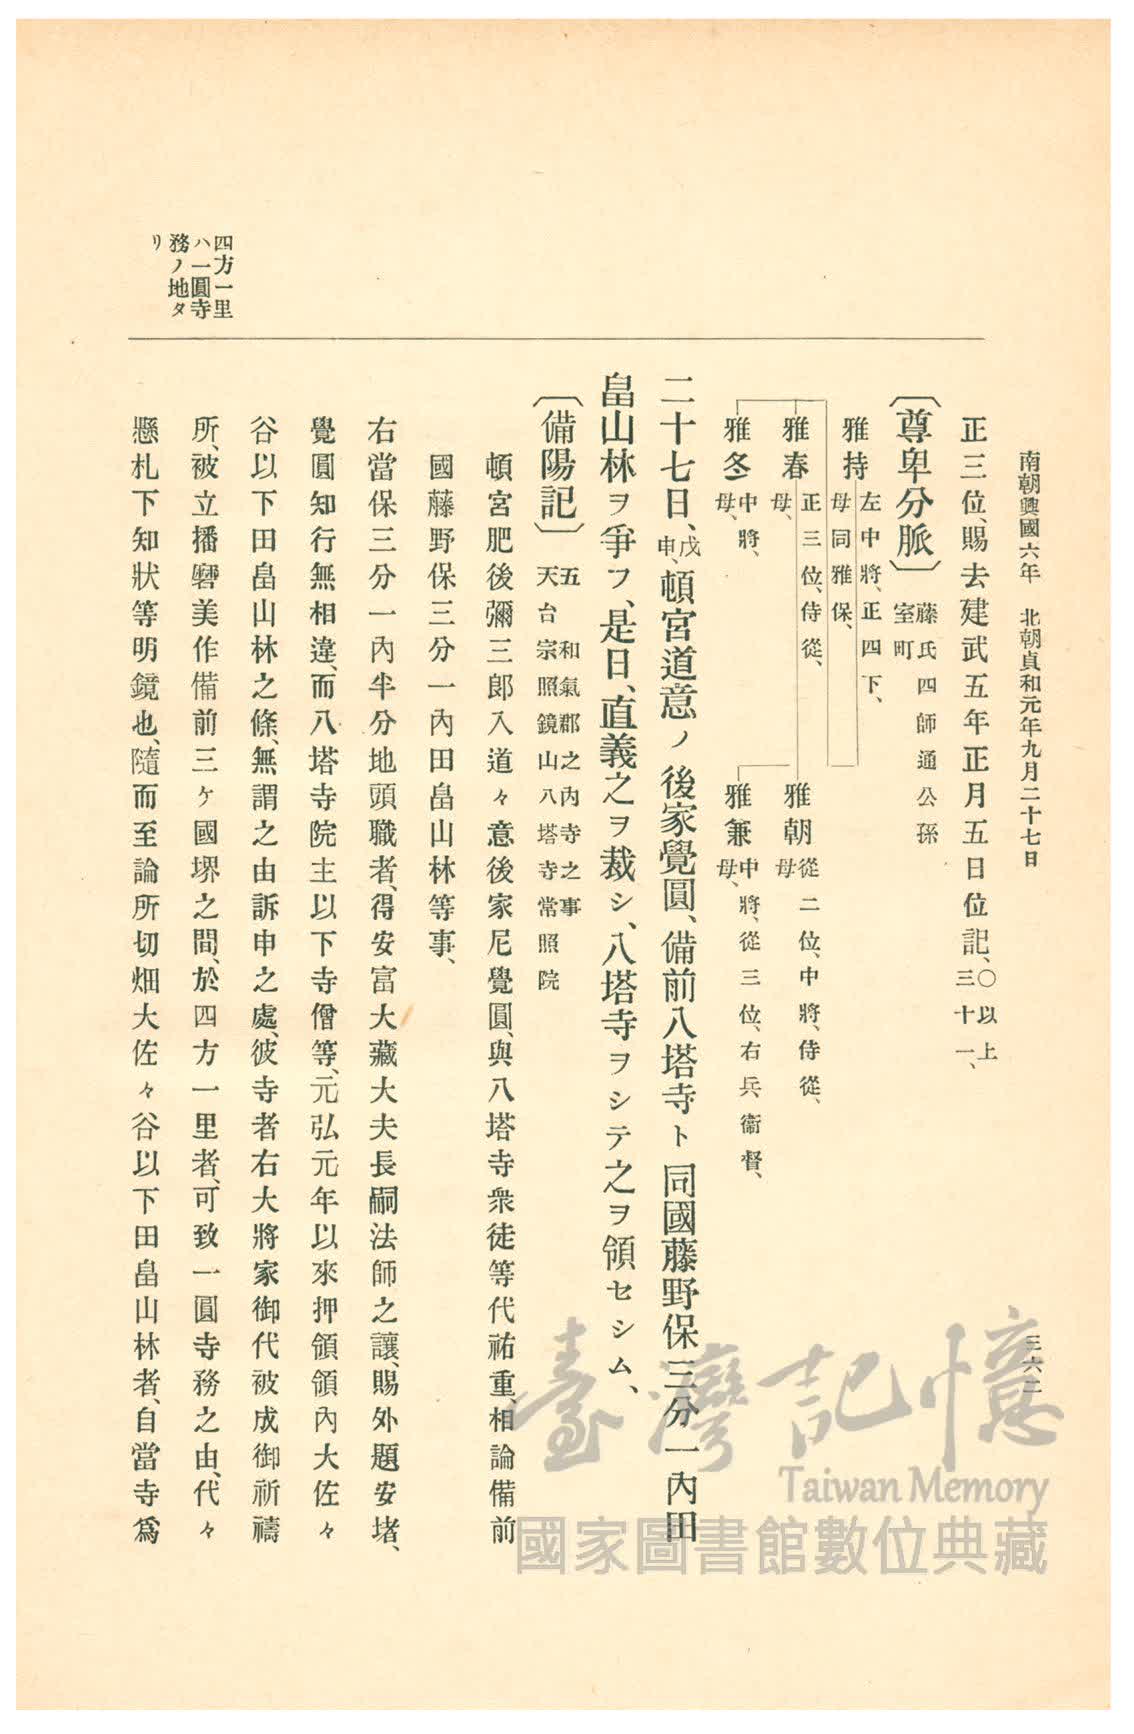 南朝興國六年　北朝貞和元年九月二十七日
三六二
正三位、賜去建武五年正月五日位記、〇以上三十一、
〔尊卑分脈〕藤氏四師通公孫
室町
雅持 左中將、正四下、
母同雅保、
雅春 正三位、侍從、
母、
雅朝 從二位、中將、侍從、
母
雅冬 中將、
母、
雅兼 中將、從三位、右兵衞督、
母、
二十七日、戊申、頓宮道意ノ後家覺圓、備前八塔寺ト同國藤野保三分一內田
畠山林ヲ爭フ、是日、直義之ヲ裁シ、八塔寺ヲシテ之ヲ領セシム、
〔備陽記〕五 和氣郡之內寺之事
天台宗照鏡山八塔寺常照院
頓宮肥後彌三郞入道々意後家尼覺圓、與八塔寺衆徒等代祐重、相論備前
國藤野保三分一內田畠山林等事、
右當保三分一內半分地頭職者、得安富大藏大夫長嗣法師之讓、賜外題安堵、
覺圓知行無相違、而八塔寺院主以下寺僧等、元弘元年以來押領領內大佐々
谷以下田畠山林之條、無謂之由訴申之處、彼寺者右大將家御代被成御祈禱
所、被立播磨美作備前三ケ國堺之間、於四方一里者、可致一圓寺務之由、代々
懸札下知狀等明鏡也、隨而至論所切畑大佐々谷以下田畠山林者、自當寺爲
四方一里
ハ一圓寺
務ノ地タ
リ
臺灣記憶
Taiwan Memory
國家圖書館數位典藏